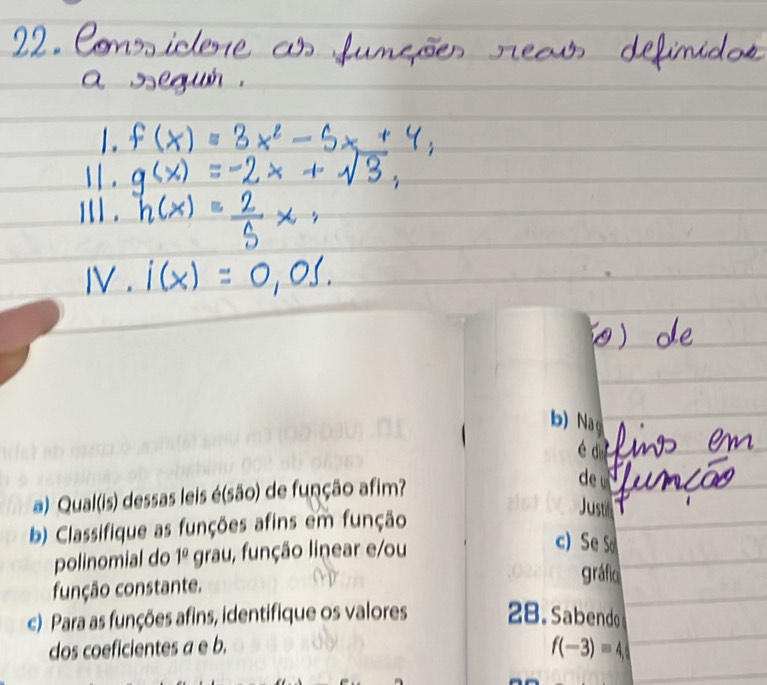 22. Considere as funções reais definidas
a seguir.
I. f(x) = 3x² - 5x + 4;
II. g(x) = -2x + √3;
III. h(x) = 2/5 x;
IV. i(x) = 0,05.
o) de
fins em
função
a) Qual(is) dessas leis é(são) de função afim?
b) Classifique as funções afins em função
polinomial do 1º grau, função linear e/ou
função constante.
c) Para as funções afins, identifique os valores
dos coeficientes a e b.
b) Na
é di
de u
Justifi
c) Se
gráfic
28. Sabendo
f(-3) = 4,